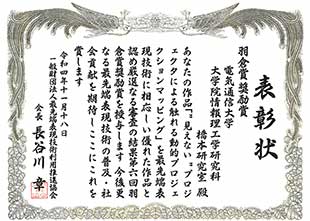 表彰状
羽倉賞奨励賞
電気通信大学
大学院情報理工学研究科
橋本研究室 殿
あなたの作品『"見えない"プロジ
ェクタによる触れる動的プロジェ
クションマッピング』を最先端表
現技術に相応しい優れた作品と
認め厳選なる審査の結果第六回羽
倉賞奨励賞を授与します 今後更
なる最先端表現技術の普及・社
会貢献を期待しここにこれを
賞します
令和四年十一月十八日
一般財団法人最先端表現技術利用推進協会
会長 長谷川 章